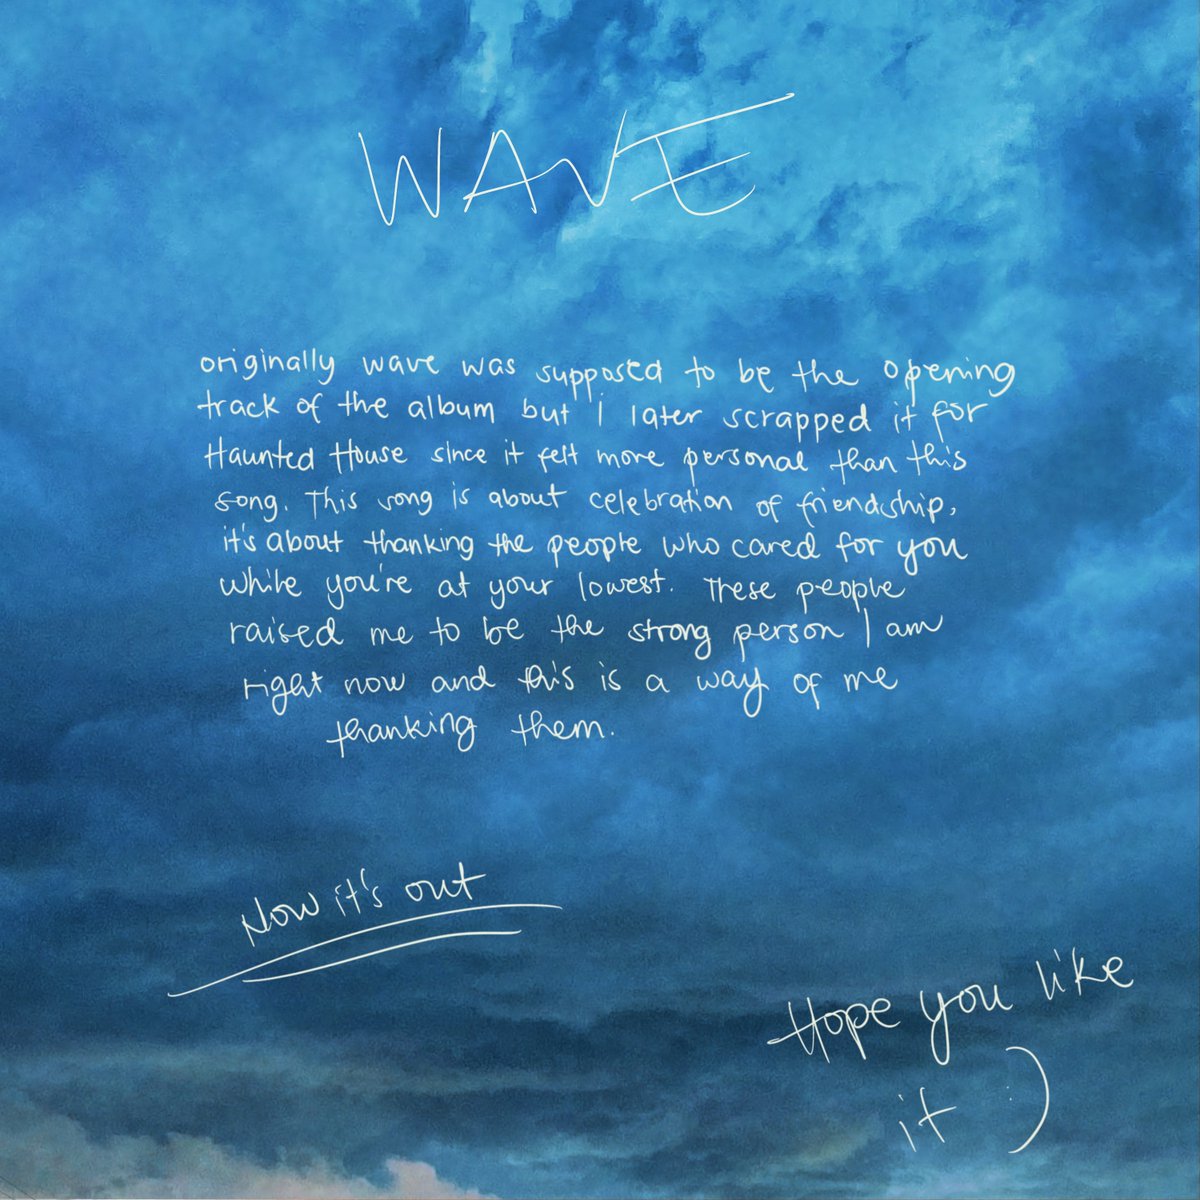 WAVE
originally wave was supposed to be the opening
track of the album but I later scrapped it for
Haunted House since it felt more personal than this
song. This song is about celebration of friendship,
it's about thanking the people who cared for you
while you're at your lowest. These people
raised me to be the strong person I am
right now and this is a way of me
thanking them.
Now it's out
Hope you like
it :)